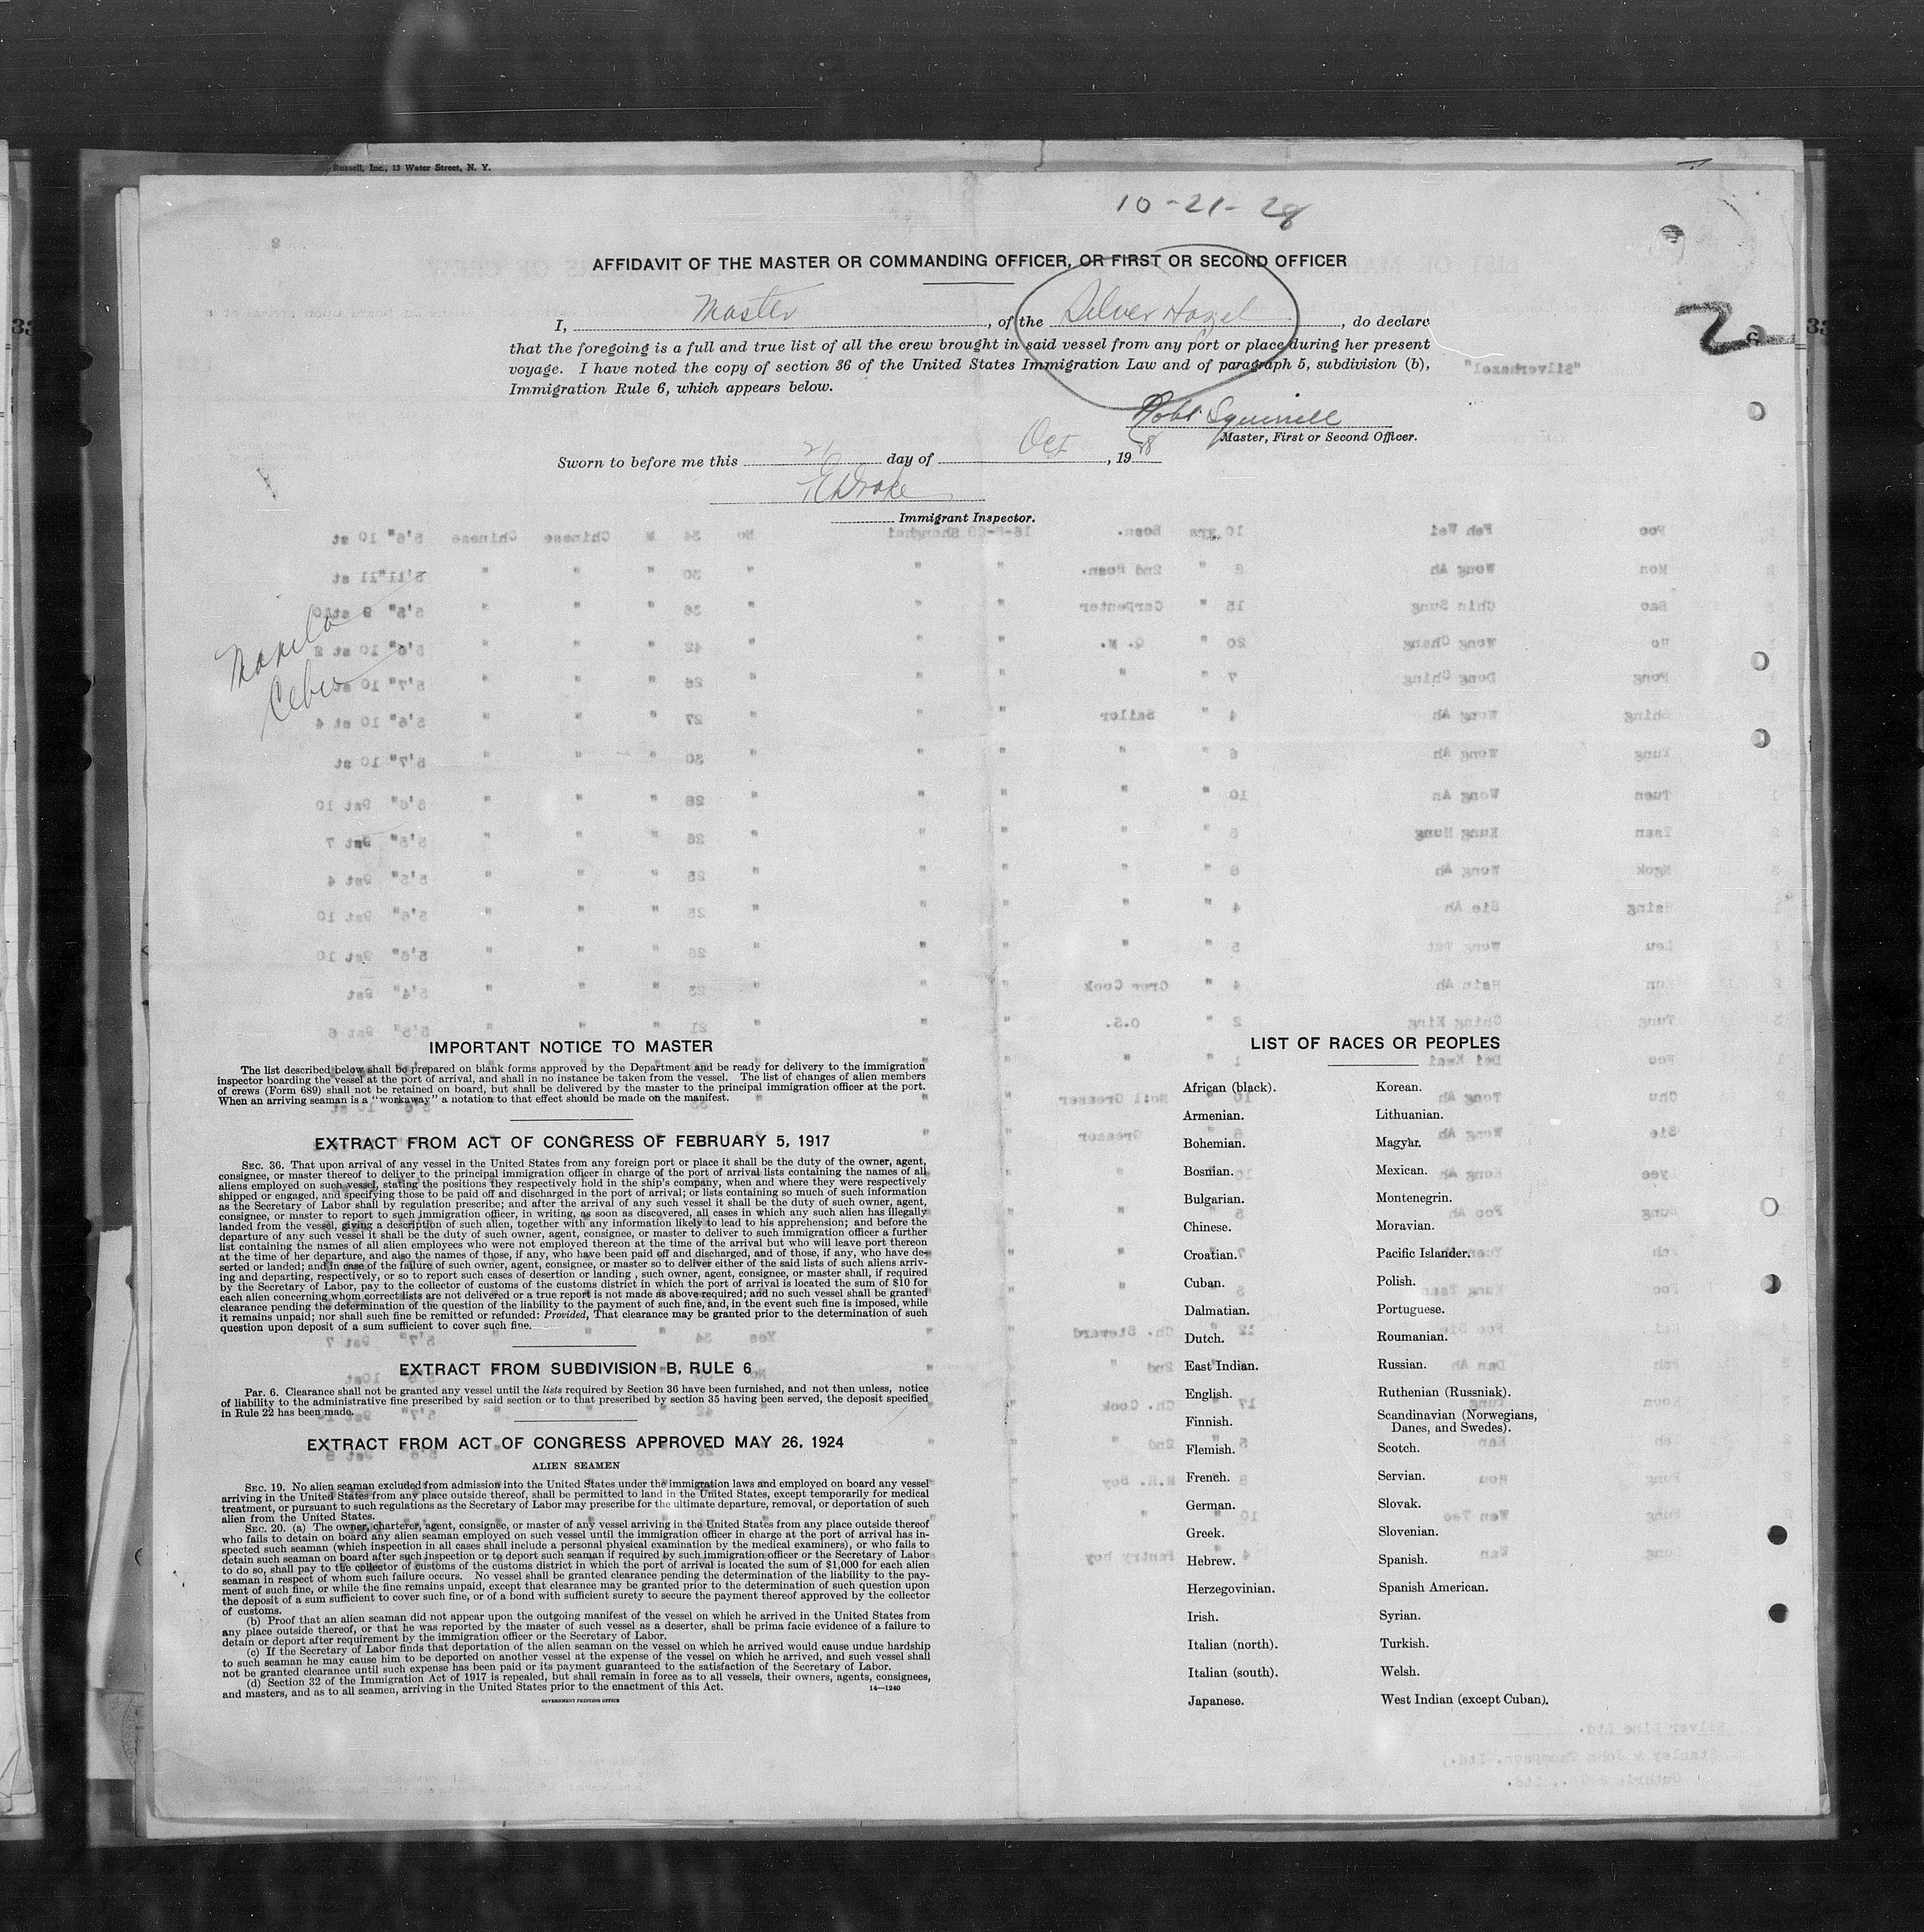 Russell, Inc., 13 Water Street, N. Y.
10-21-28
AFFIDAVIT OF THE MASTER OR COMMANDING OFFICER, OR FIRST OR SECOND OFFICER
I, Master, of the Silver Hazel, do declare
that the foregoing is a full and true list of all the crew brought in said vessel from any port or place during her present
voyage. I have noted the copy of section 36 of the United States Immigration Law and of paragraph 5, subdivision (b),
Immigration Rule 6, which appears below.
2
Robt Squirrell
Master, First or Second Officer.
Sworn to before me this 21 day of Oct, 1928
Drake
Immigrant Inspector.
Manila
Cebu
IMPORTANT NOTICE TO MASTER
The list described below shall be prepared on blank forms approved by the Department and be ready for delivery to the immigration
inspector boarding the vessel at the port of arrival, and shall in no instance be taken from the vessel. The list of changes of alien members
of crews (Form 689) shall not be retained on board, but shall be delivered by the master to the principal immigration officer at the port.
When an arriving seaman is a "workaway" a notation to that effect should be made on the manifest.
EXTRACT FROM ACT OF CONGRESS OF FEBRUARY 5, 1917
SEC. 36. That upon arrival of any vessel in the United States from any foreign port or place it shall be the duty of the owner, agent,
consignee, or master thereof to deliver to the principal immigration officer in charge of the port of arrival lists containing the names of all
aliens employed on such vessel, stating the positions they respectively hold in the ship's company, when and where they were respectively
shipped or engaged, and specifying those to be paid off and discharged in the port of arrival; or lists containing so much of such information
as the Secretary of Labor shall by regulation prescribe; and after the arrival of any such vessel it shall be the duty of such owner, agent,
consignee, or master to report to such immigration officer, in writing, as soon as discovered, all cases in which any such alien has illegally
landed from the vessel, giving a description of such alien, together with any information likely to lead to his apprehension; and before the
departure of any such vessel it shall be the duty of such owner, agent, consignee, or master to deliver to such immigration officer a further
list containing the names of all alien employees who were not employed thereon at the time of the arrival but who will leave port thereon
at the time of her departure, and also the names of those, if any, who have been paid off and discharged, and of those, if any, who have de-
serted or landed; and in case of the failure of such owner, agent, consignee, or master so to deliver either of the said lists of such aliens arriv-
ing and departing, respectively, or so to report such cases of desertion or landing, such owner, agent, consignee, or master shall, if required
by the Secretary of Labor, pay to the collector of customs of the customs district in which the port of arrival is located the sum of $10 for
each alien concerning whom correct lists are not delivered or a true report is not made as above required; and no such vessel shall be granted
clearance pending the determination of the question of the liability to the payment of such fine, and, in the event such fine is imposed, while
it remains unpaid; nor shall such fine be remitted or refunded: Provided, That clearance may be granted prior to the determination of such
question upon deposit of a sum sufficient to cover such fine.
EXTRACT FROM SUBDIVISION B, RULE 6
Par. 6. Clearance shall not be granted any vessel until the lists required by Section 36 have been furnished, and not then unless, notice
of liability to the administrative fine prescribed by said section or to that prescribed by section 35 having been served, the deposit specified
in Rule 22 has been made.
EXTRACT FROM ACT OF CONGRESS APPROVED MAY 26, 1924
ALIEN SEAMEN
SEC. 19. No alien seaman excluded from admission into the United States under the immigration laws and employed on board any vessel
arriving in the United States from any place outside thereof, shall be permitted to land in the United States, except temporarily for medical
treatment, or pursuant to such regulations as the Secretary of Labor may prescribe for the ultimate departure, removal, or deportation of such
alien from the United States.
SEC. 20. (a) The owner, charterer, agent, consignee, or master of any vessel arriving in the United States from any place outside thereof
who fails to detain on board any alien seaman employed on such vessel until the immigration officer in charge at the port of arrival has in-
spected such seaman (which inspection in all cases shall include a personal physical examination by the medical examiners), or who fails to
detain such seaman on board after such inspection or to deport such seaman if required by such immigration officer or the Secretary of Labor
to do so, shall pay to the collector of customs of the customs district in which the port of arrival is located the sum of $1,000 for each alien
seaman in respect of whom such failure occurs. No vessel shall be granted clearance pending the determination of the liability to the pay-
ment of such fine, or while the fine remains unpaid, except that clearance may be granted prior to the determination of such question upon
the deposit of a sum sufficient to cover such fine, or of a bond with sufficient surety to secure the payment thereof approved by the collector
of customs.
(b) Proof that an alien seaman did not appear upon the outgoing manifest of the vessel on which he arrived in the United States from
any place outside thereof, or that he was reported by the master of such vessel as a deserter, shall be prima facie evidence of a failure to
detain or deport after requirement by the immigration officer or the Secretary of Labor.
(c) If the Secretary of Labor finds that deportation of the alien seaman on the vessel on which he arrived would cause undue hardship
to such seaman he may cause him to be deported on another vessel at the expense of the vessel on which he arrived, and such vessel shall
not be granted clearance until such expense has been paid or its payment guaranteed to the satisfaction of the Secretary of Labor.
(d) Section 32 of the Immigration Act of 1917 is repealed, but shall remain in force as to all vessels, their owners, agents, consignees,
and masters, and as to all seamen, arriving in the United States prior to the enactment of this Act.
14—1240
GOVERNMENT PRINTING OFFICE
LIST OF RACES OR PEOPLES
African (black).
Armenian.
Bohemian.
Bosnian.
Bulgarian.
Chinese.
Croatian.
Cuban.
Dalmatian.
Dutch.
East Indian.
English.
Finnish.
Flemish.
French.
German.
Greek.
Hebrew.
Herzegovinian.
Irish.
Italian (north).
Italian (south).
Japanese.
Korean.
Lithuanian.
Magyar.
Mexican.
Montenegrin.
Moravian.
Pacific Islander.
Polish.
Portuguese.
Roumanian.
Russian.
Ruthenian (Russniak).
Scandinavian (Norwegians,
Danes, and Swedes).
Scotch.
Servian.
Slovak.
Slovenian.
Spanish.
Spanish American.
Syrian.
Turkish.
Welsh.
West Indian (except Cuban).